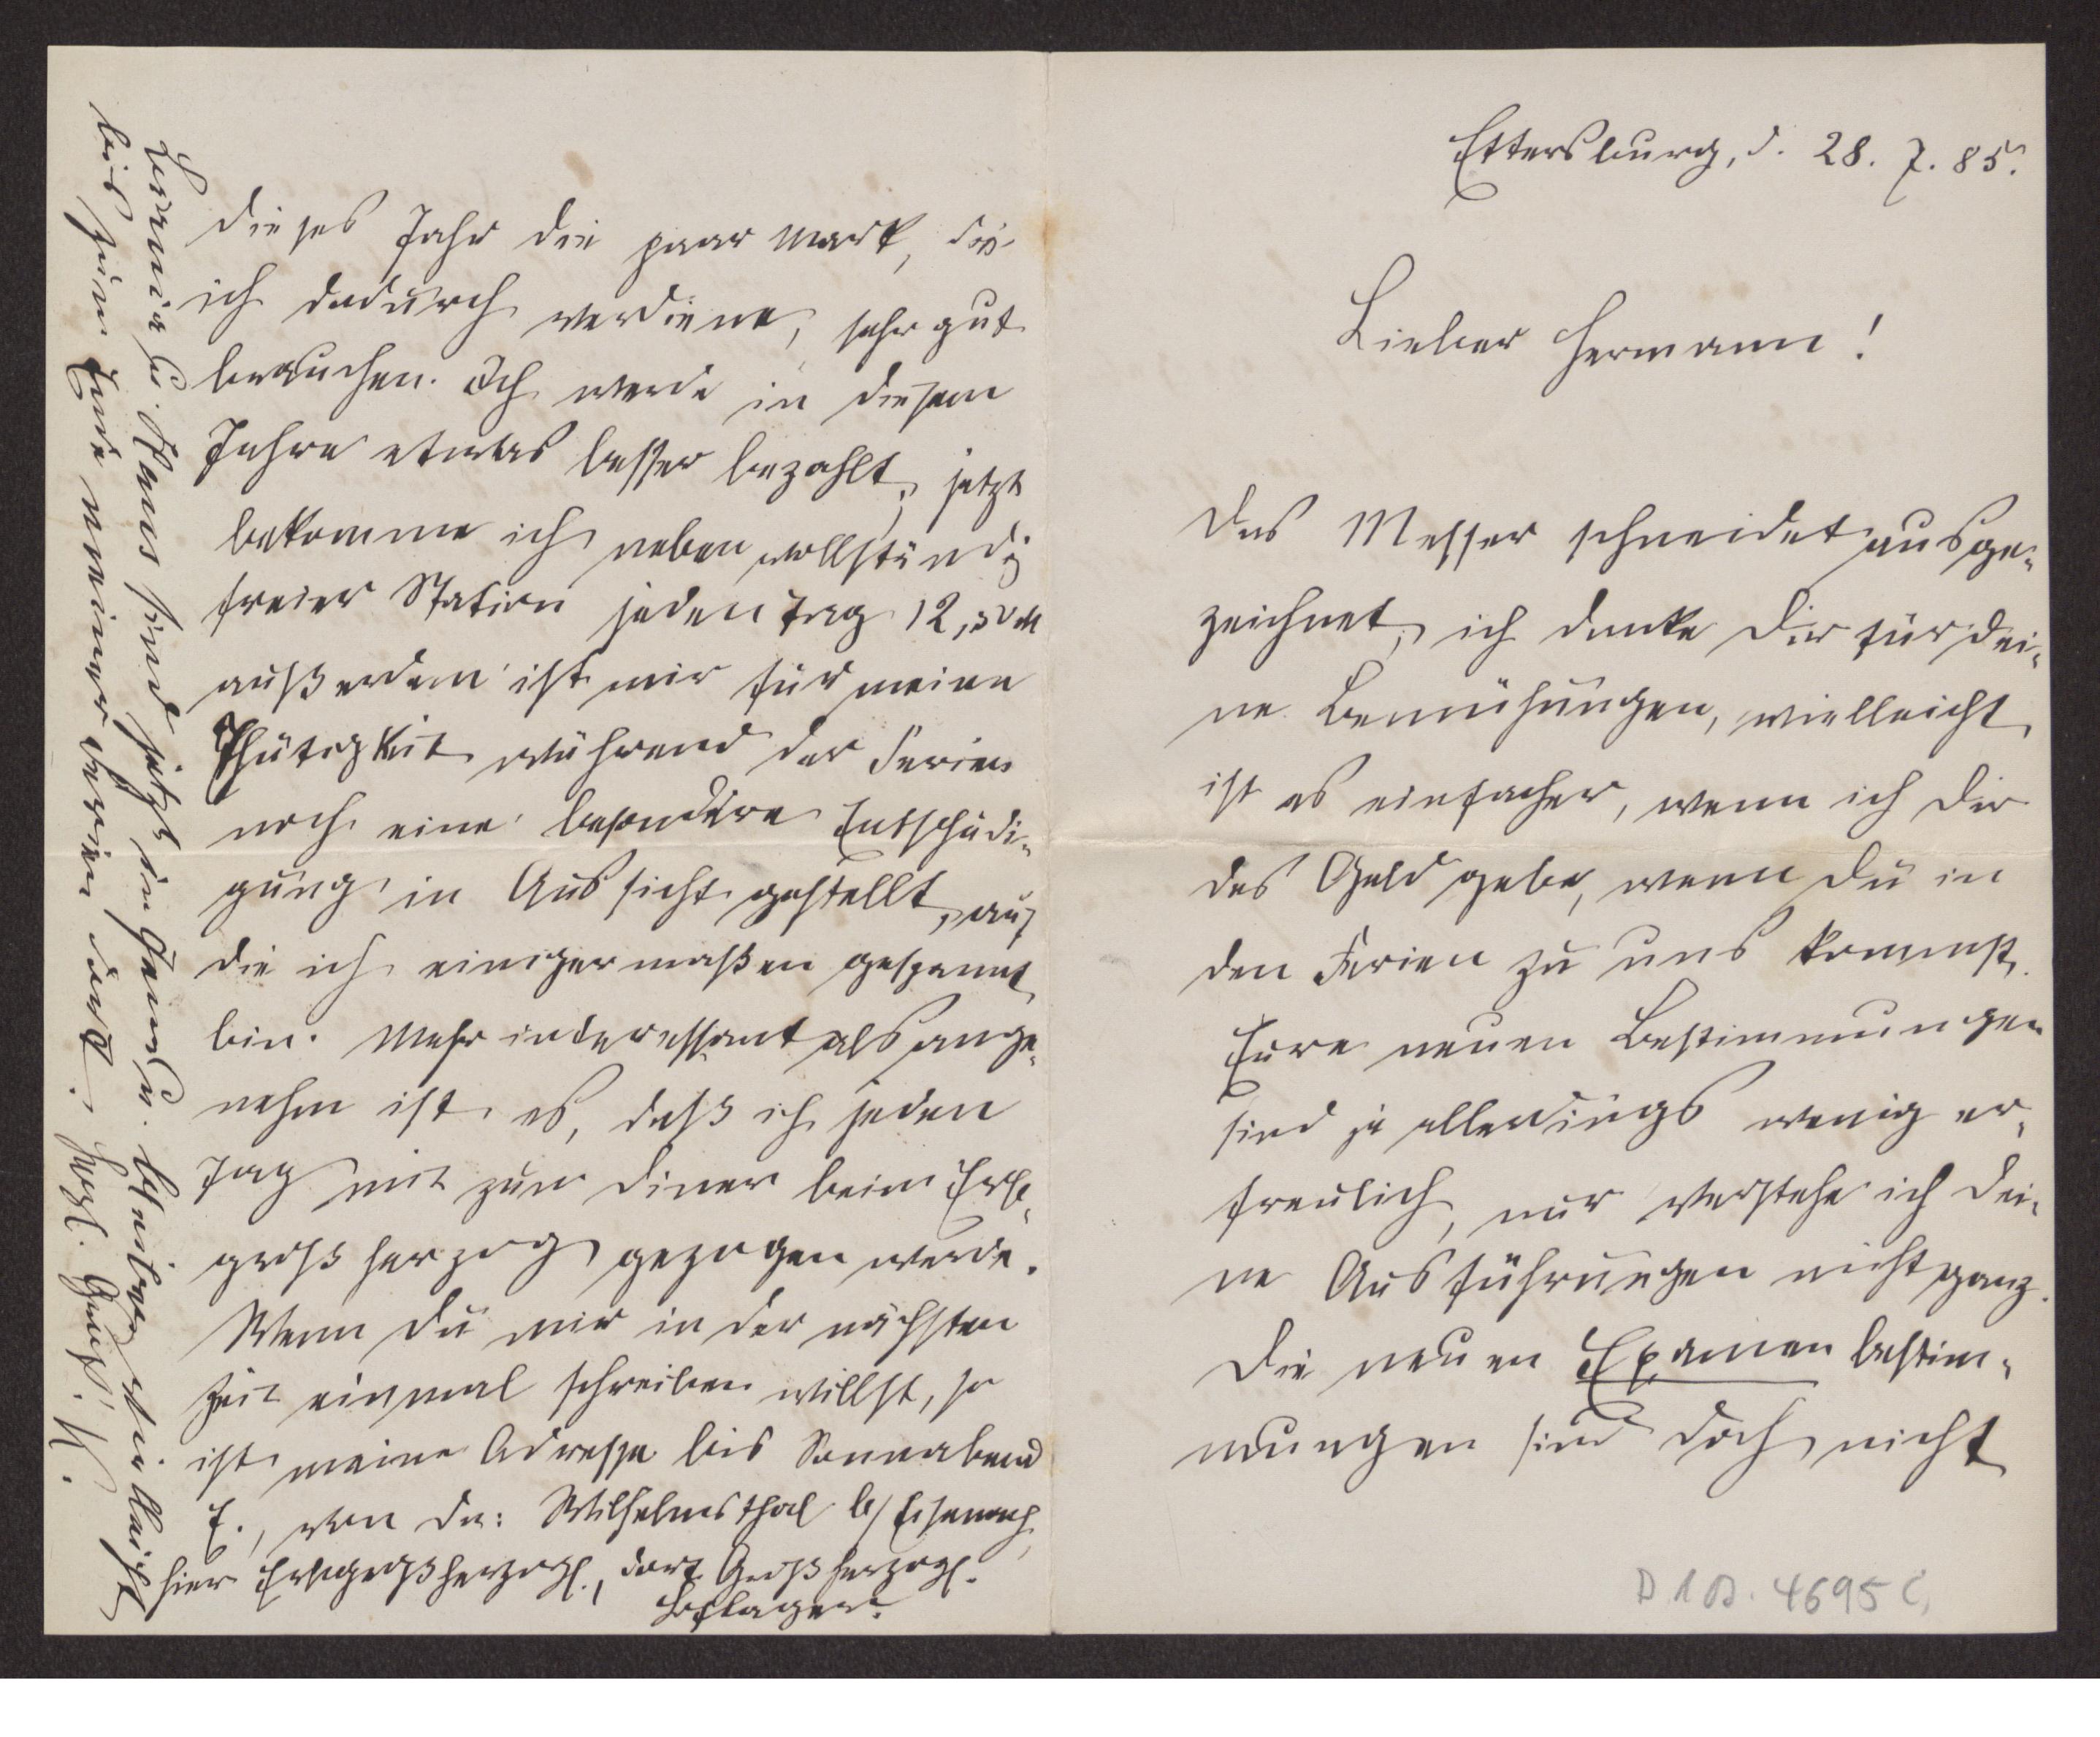 Ettersburg, d. 28. 7. 85.
Lieber Hermann!
Das Messer schneidet ausge-
zeichnet, ich danke Dir für Dei-
ne Bemühungen, vielleicht
ist es einfacher, wenn ich Dir
das Geld gebe, wenn Du in
den Ferien zu uns kommst.
Eure neuen Bestimmungen
sind ja allerdings wenig er-
freulich, nur verstehe ich Dei-
ne Ausführungen nicht ganz.
Die neuen Examen bestim-
mungen sind doch nicht
D 1 B. 4695 C,
dieses Jahr die paar Mark, die
ich dadurch verdiene, sehr gut
brauchen. Ich werde in diesem
Jahre etwas besser bezahlt, jetzt
bekomme ich neben vollständig
freier Station jeden Tag 12,50 M
außerdem ist mir für meine
Thätigkeit während der Ferien
noch eine besondere Entschädi-
gung in Aussicht gestellt, auf
die ich einigermaßen gespannt
bin. Mehr interessant als ange-
nehm ist es, daß ich jeden
Tag mit zum Diner beim Erb-
großherzog gezogen werde.
Wenn Du mir in der nächsten
Zeit einmal schreiben willst, so
ist meine Adresse bis Sonnabend
E., von da: Wilhelmsthal b/ Eisenach,
hier Erbgroßherzogl., dort Großherzogl.
Hoflager.
u. Hans sind jetzt in Jena u. bleiben vielleicht
bis zum Ende meiner Ferien dort. Herzl. Gruß! K.